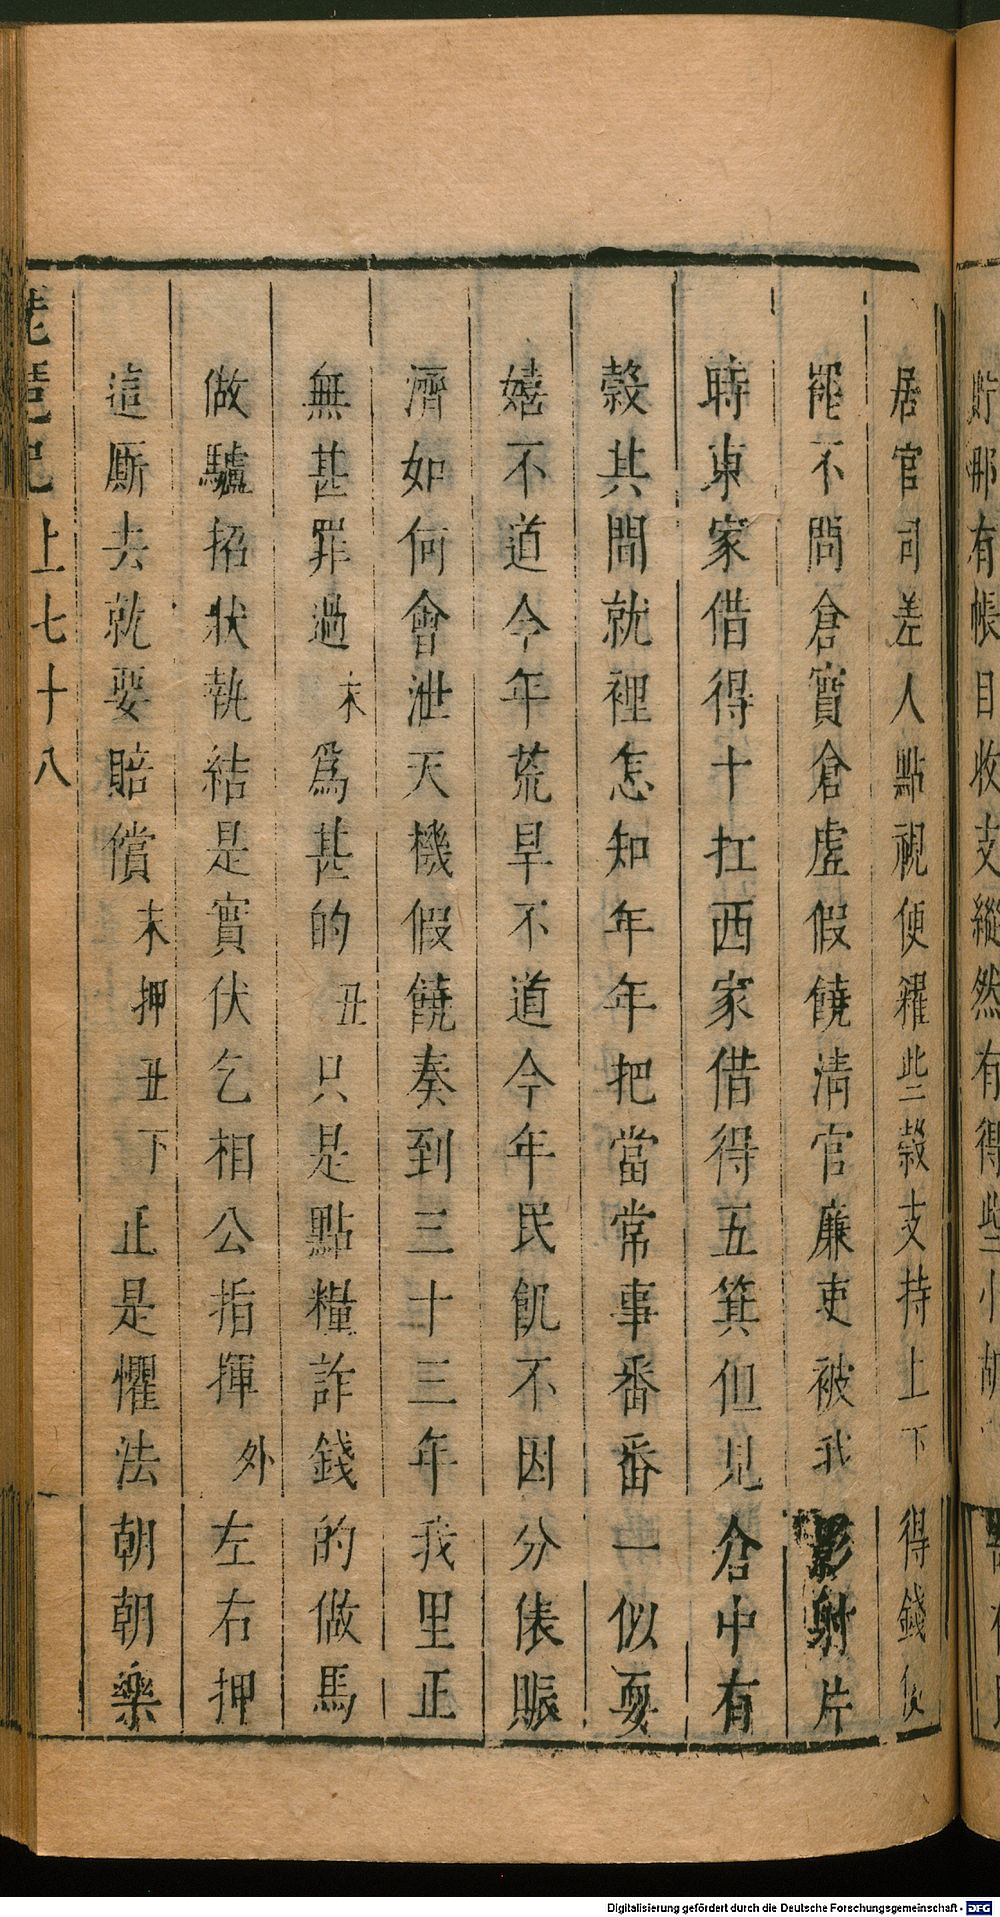 貯那有帳目收支縱然有得些小
居官司差人點視便糴些穀支持上下得錢便
罷不問倉實倉虛假饒清官廉吏被我影射片
時東家借得十扛西家借得五箕但見倉中有
穀其間就裡怎知年年把當常事番番一似耍
嬉不道今年荒旱不道今年民飢不因分俵賑
濟如何會泄天機假饒奏到三十三年我里正
無甚罪過末爲甚的丑只是點糧詐錢的做馬
做驢招狀執結是實伏乞相公指揮外左右押
這厮去就要賠償末押丑下正是懼法朝朝樂
琵琶記上七十八
Digitalisierung gefördert durch die Deutsche Forschungsgemeinschaft - DFG